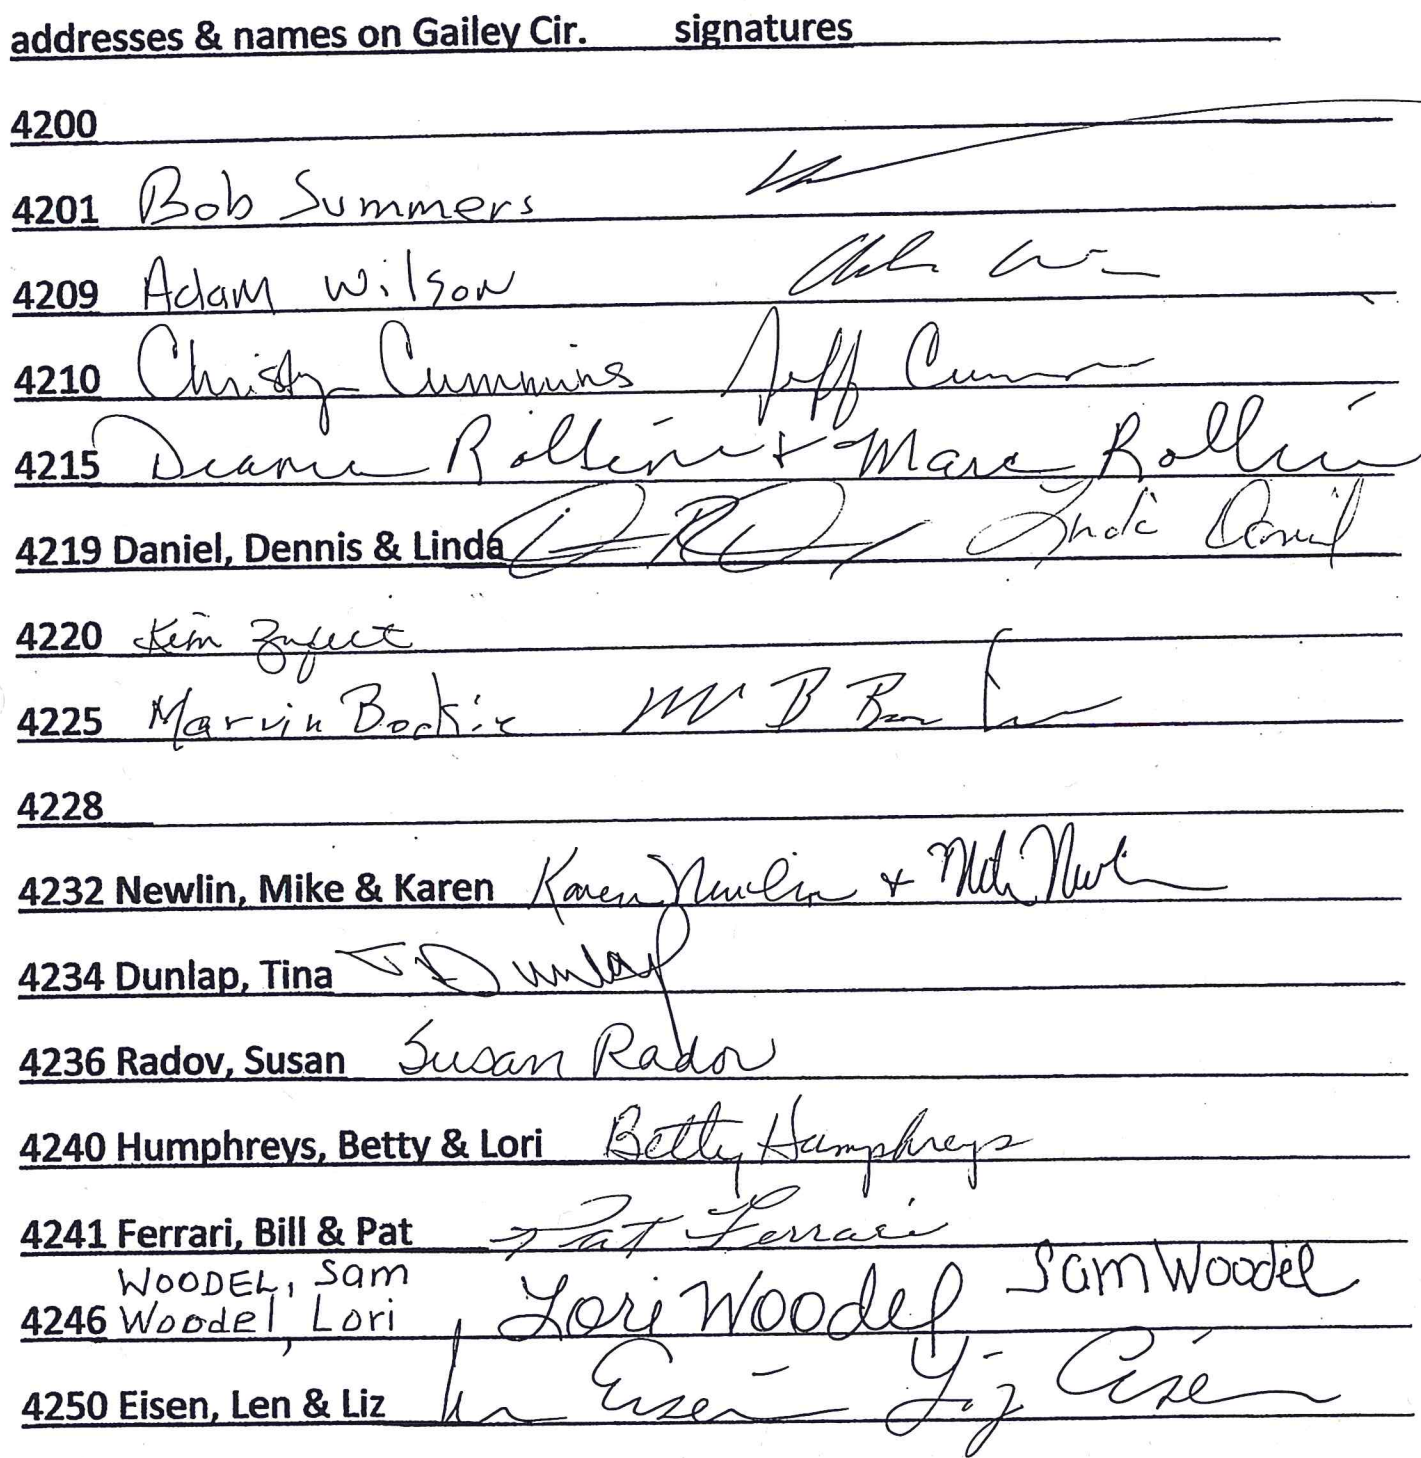 addresses & names on Gailey Cir. signatures
4200
4201 Bob Summers
4209 Adam Wilson
4210 Christy Cummins Jeff Cummins
4215 Deanna Rollins + Marc Rollins
4219 Daniel, Dennis & Linda Linda Daniel
4220 Kim
4225 Marvin
4228
4232 Newlin, Mike & Karen Karen Newlin + Mike Newlin
4234 Dunlap, Tina T Dunlap
4236 Radov, Susan Susan Radov
4240 Humphreys, Betty & Lori Betty Humphreys
4241 Ferrari, Bill & Pat Pat Ferrari
WOODEL, Sam Sam Woodel
4246 Woodel, Lori Lori Woodel
4250 Eisen, Len & Liz Len Eisen Liz Eisen